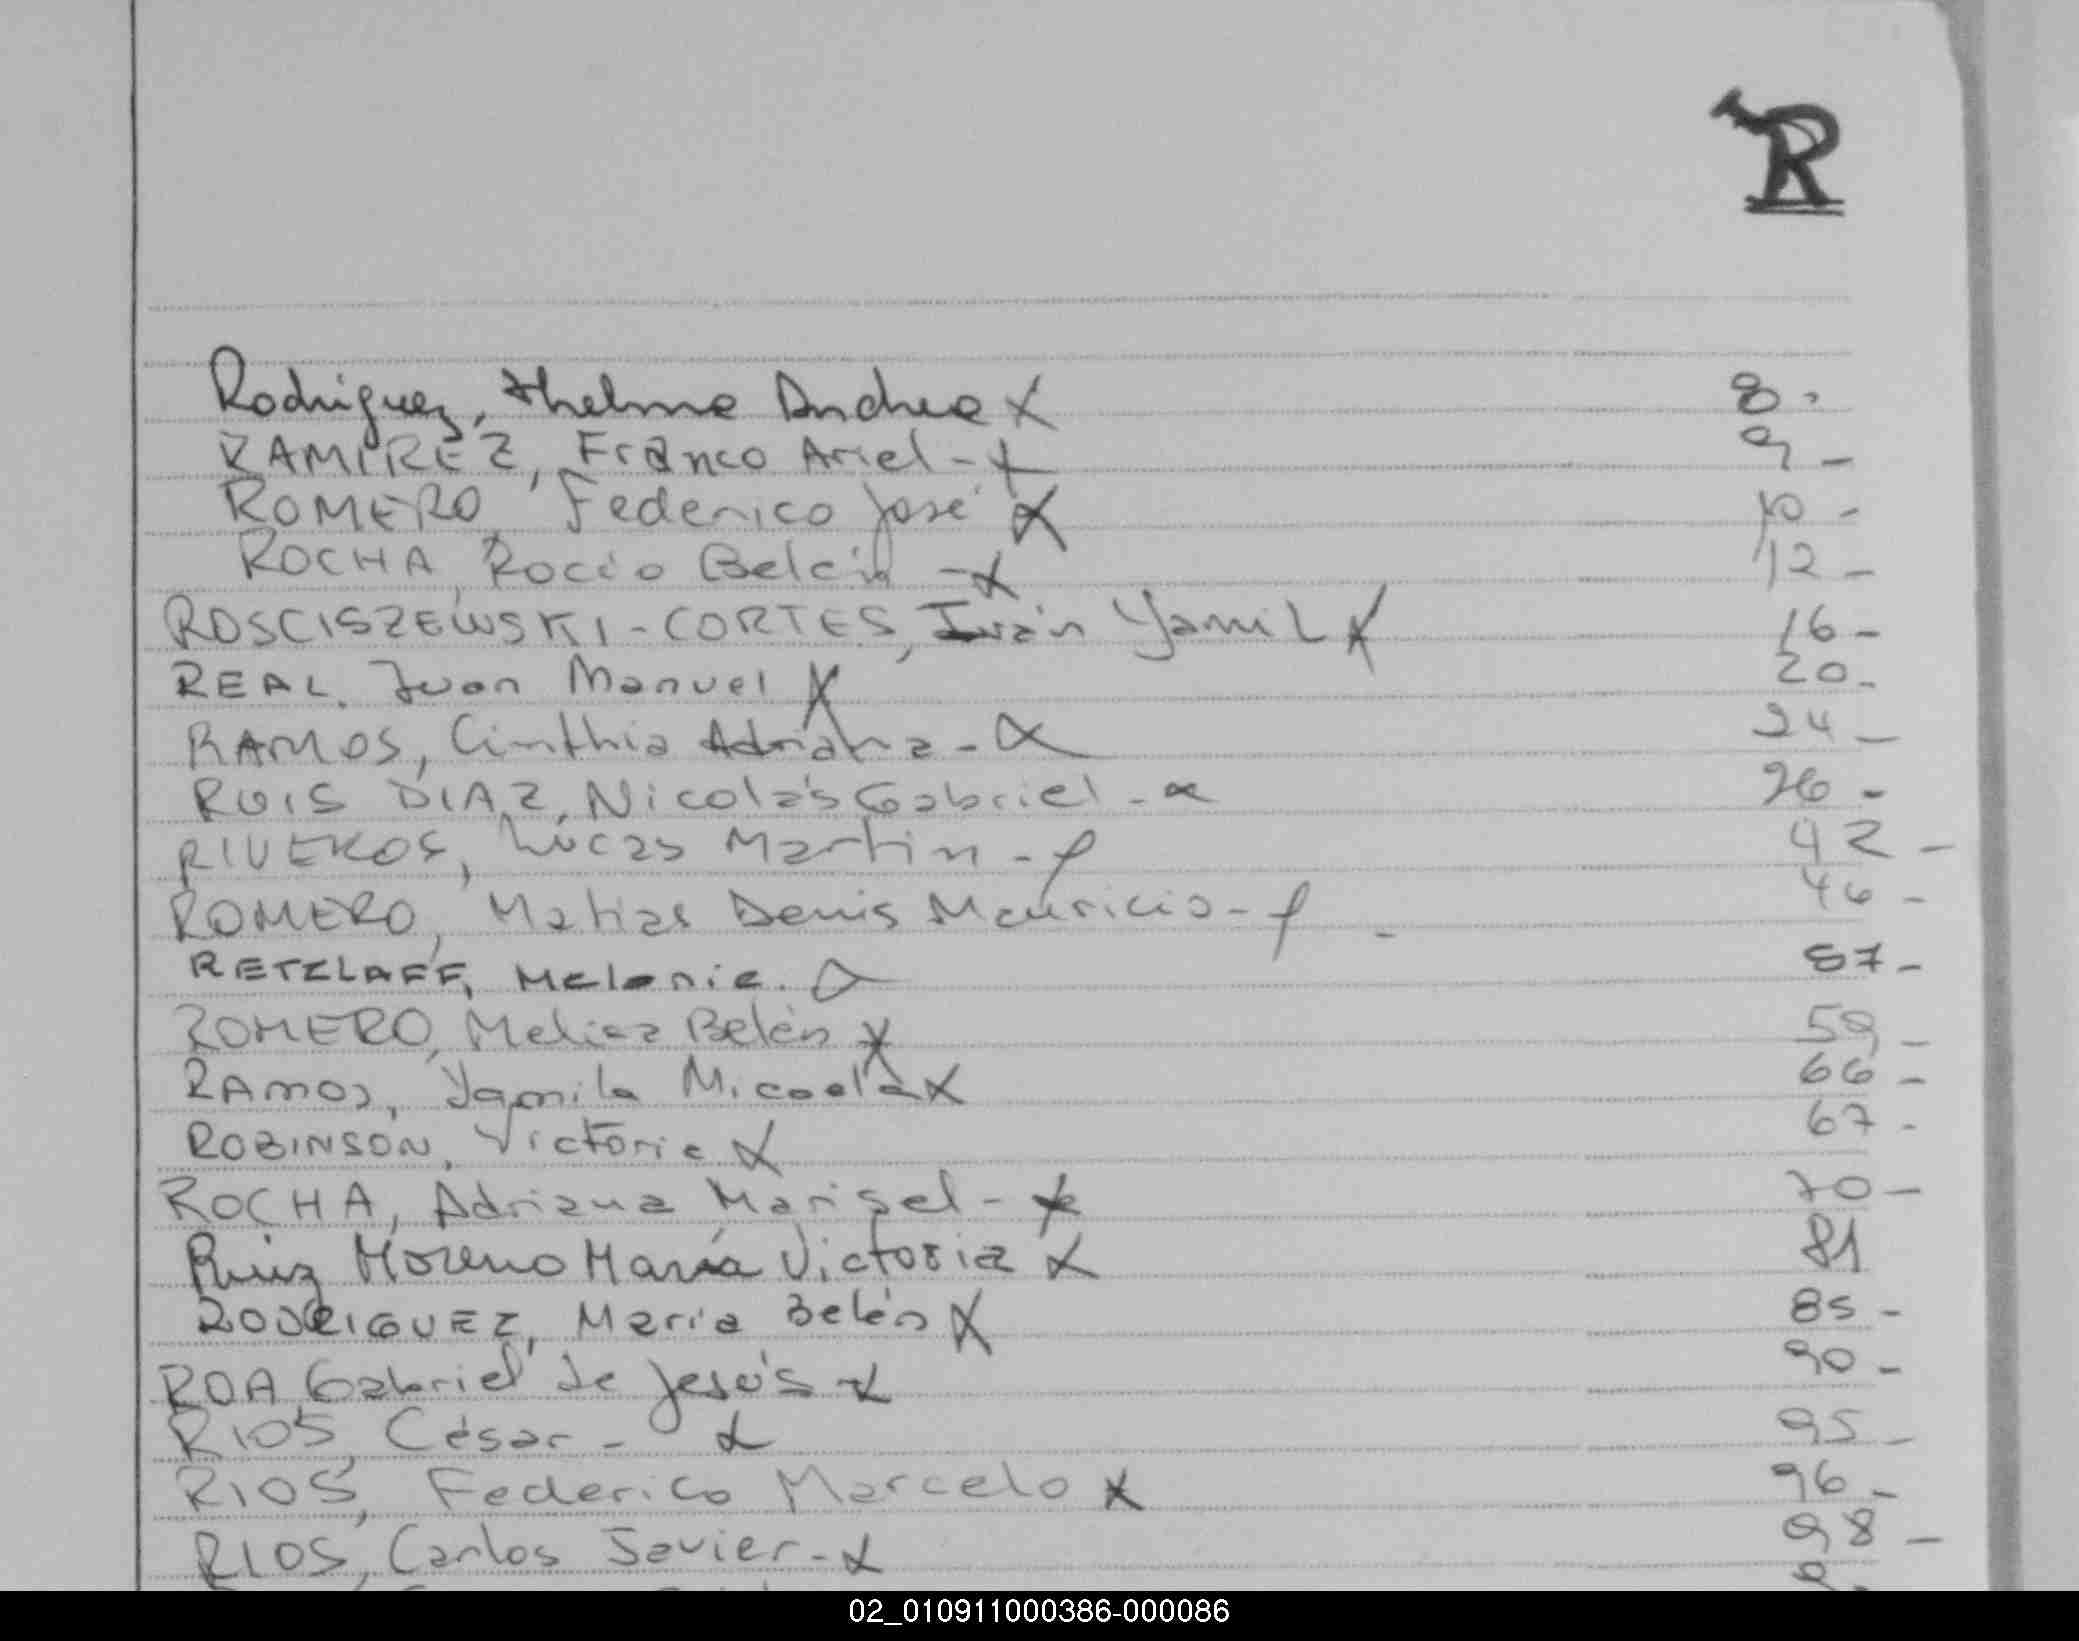 R
Rodriguez, Thelma Andrea X 8.
RAMIREZ, Franco Ariel - X 9 -
ROMERO, Federico José X 10 -
ROCHA, Rocío Belén - X 12 -
ROSCISZEWSKI-CORTES, Iván Yamil X 16 -
REAL, Juan Manuel X 20.
RAMOS, Cinthia Adriana - X 24 -
RUIS DIAZ, Nicolás Gabriel - X 26 -
RIVEROS, Lucas Martin - 42 -
ROMERO, Matias Denis Mauricio - 46 -
RETZLAFF, Melanie. 57 -
ROMERO, Belén X 59 -
RAMOS, Yamila Micaela X 66 -
ROBINSON, Victoria X 67 -
ROCHA, Adriana Marisel - X 70 -
Ruiz Moreno María Victoria X 81
RODRIGUEZ, María Belén X 85 -
ROA Gabriel de Jesús X 90 -
RIOS, César - X 95 -
RIOS, Federico Marcelo X 96 -
RIOS, Carlos Javier - X 98 -
02_010911000386-000086